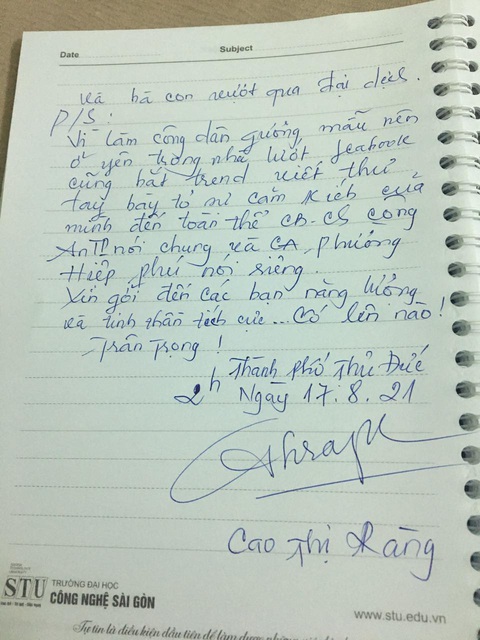 Date
Subject
và bà con vượt qua đại dịch.
P/S:
Vì làm công dân gương mẫu nên
ở yên trong nhà lướt feabook
cũng bắt trend viết thư
tay bày tỏ sự cảm kích của
mình đến toàn thể CB-CS Công
An TP nói chung và CA phường
Hiệp phú nói riêng.
Xin gởi đến các bạn năng lượng
và tinh thần tích cực... Cố lên nào!
Trân Trọng!
Thành phố Thủ Đức
2h Ngày 17.8.21
Cao Thị Ràng
STU
TRƯỜNG ĐẠI HỌC
CÔNG NGHỆ SÀI GÒN
www.stu.edu.vn
Tự tin là điều kiện đầu tiên để làm được những